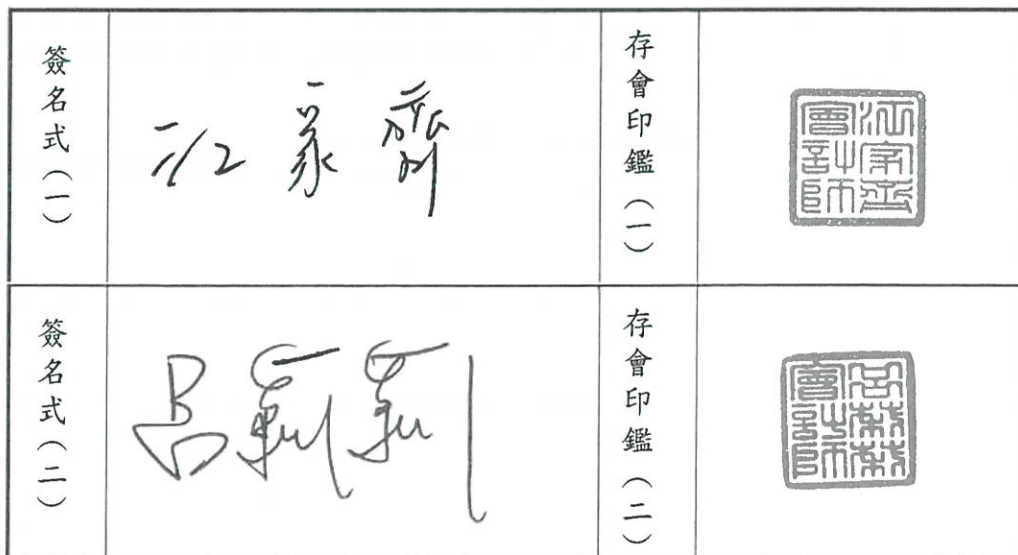 簽名式（一）
江家齊
存會印鑑（一）
江家齊
會計師
簽名式（二）
呂
存會印鑑（二）
呂
會計師